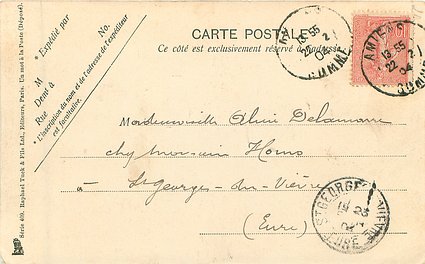 CARTE POSTALE
Ce côté est exclusivement réservé à l'adresse
* Expédié par
No.
M
Demt à
Rue
*L'inscription du nom et de l'adresse de l'expéditeur
est facultative.
Série 409. Raphael Tuck & Fils Ltd., Editeurs, Paris. Un mot à la Poste (Déposé).
AMIENS
13 55
22 2
04
SOMME
AMIENS
13 55
22 2
04
SOMME
Mademoiselle Delamare
chez Monsieur
à St Georges-du-Vièvre
(Eure)
ST GEORGES
EURE